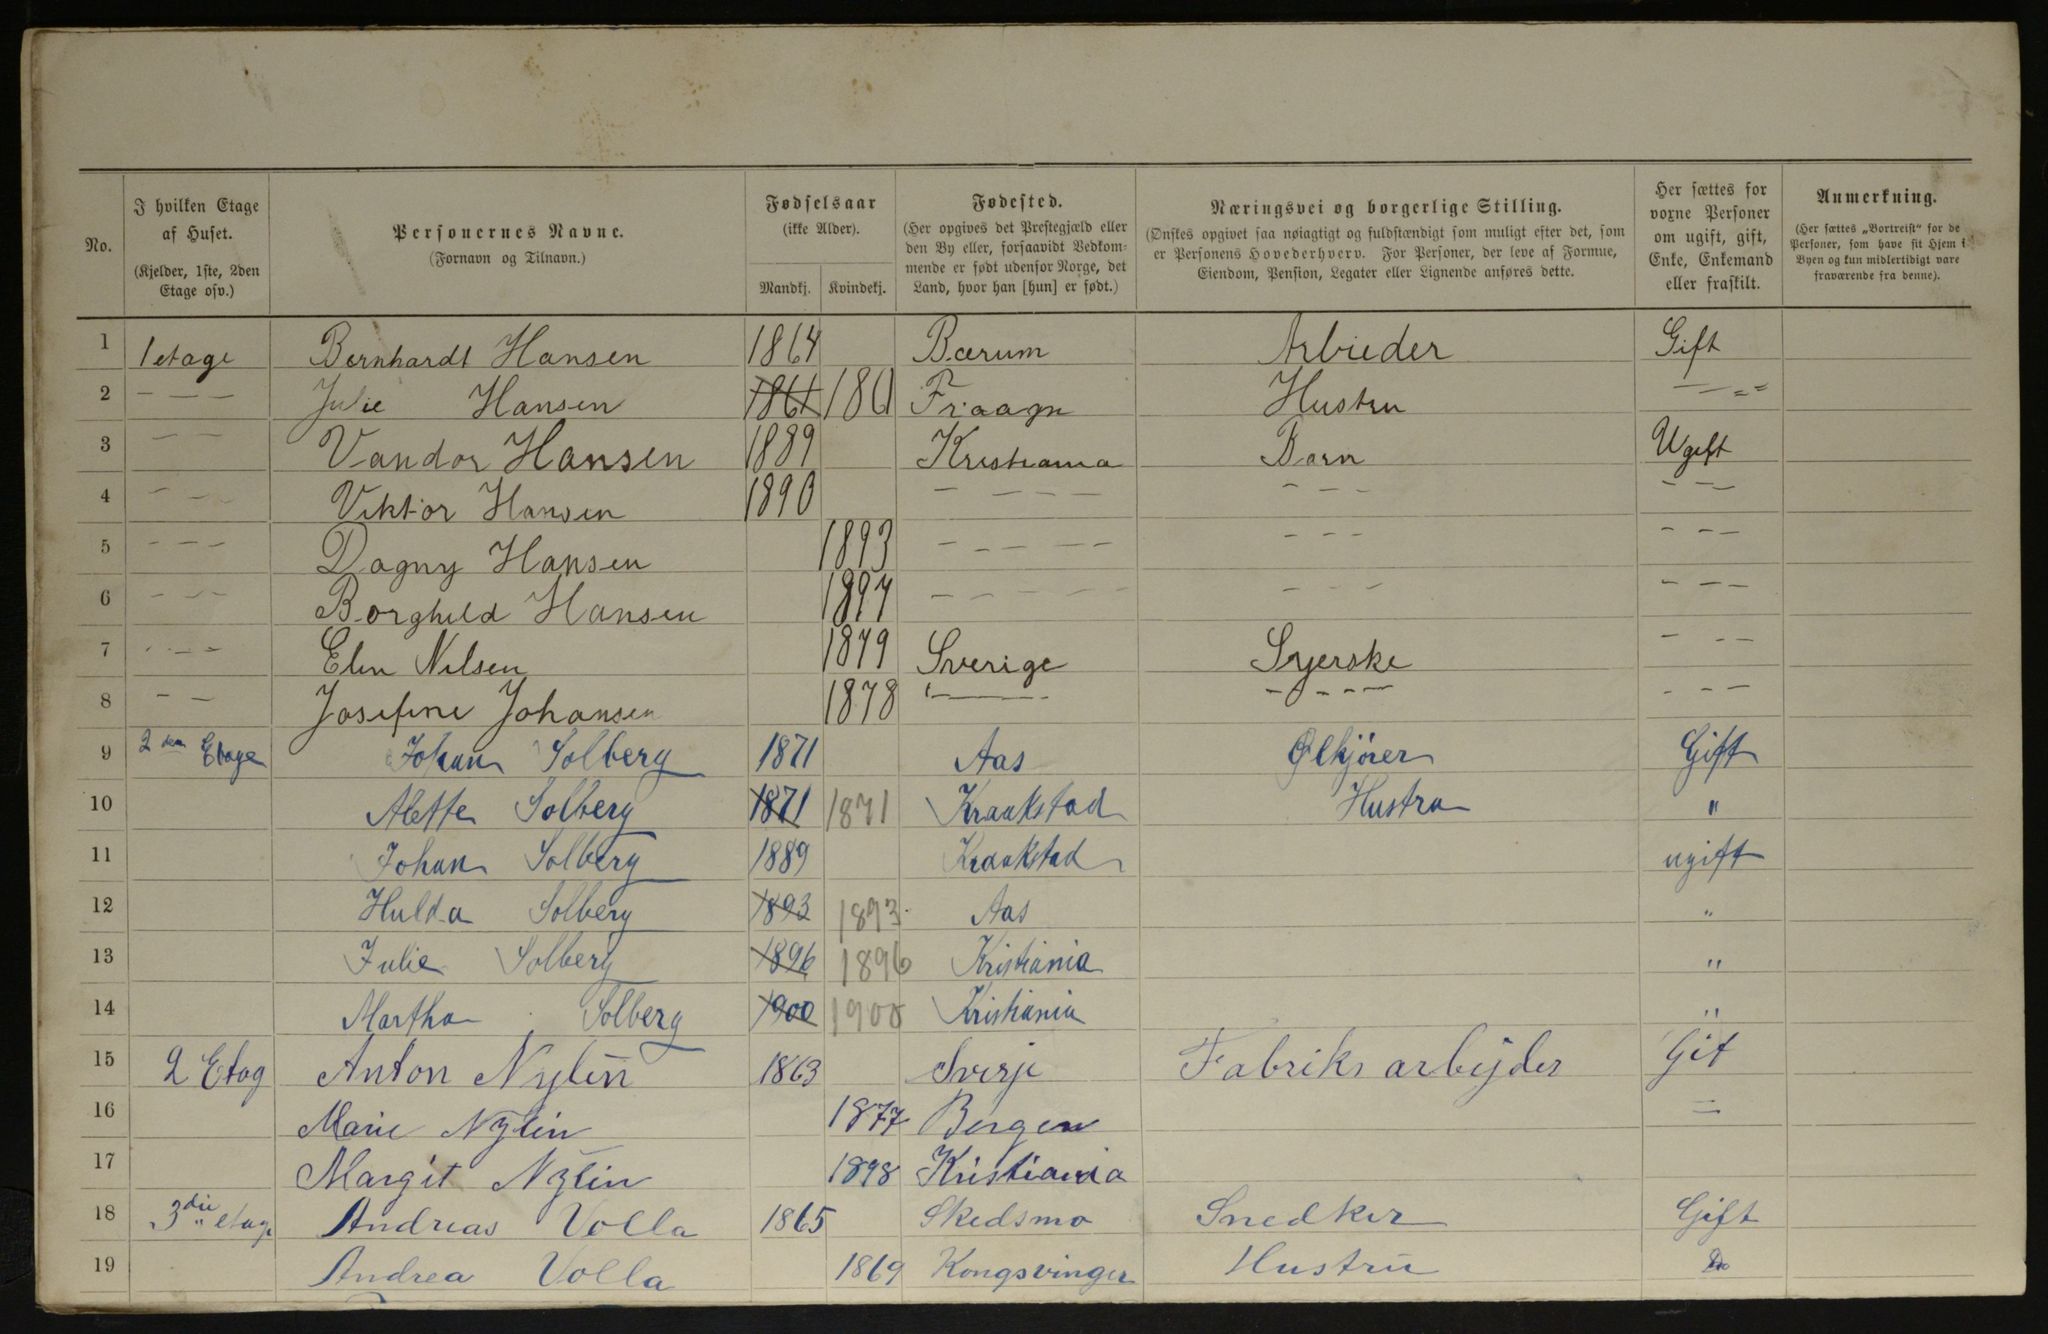 No. | I hvilken Etage af Huset. (Kjelder, 1ste, 2den Etage osv.) | Personernes Navne. (Fornavn og Tilnavn.) | Fødselsaar (ikke Alder). Mandkj. | Kvindekj. | Fødested. (Her opgives det Prestegjæld eller den By eller, forsaavidt Vedkommende er født udenfor Norge, det Land, hvor han [hun] er født.) | Næringsvei og borgerlige Stilling. (Ønskes opgivet saa nøiagtigt og fuldstændigt som muligt efter det, som er Personens Hovederhverv. For Personer, der leve af Formue, Eiendom, Pension, Legater eller Lignende anføres dette. | Her sættes for voxne Personer om ugift, gift, Enke, Enkemand eller fraskilt. | Anmerkning. (Her sættes „Bortreist“ for de Personer, som have sit Hjem i Byen og kun midlertidigt vare fraværende fra denne).
1 | 1 etage | Bernhardt Hansen | 1864 | | Bærum | Arbieder | Gift
2 | — — — | Julie Hansen | 1861 | 1861 | Fraagn | Hustru | — „ — „
3 | — — | Vandor Hansen | 1889 | | Kristiania | Barn | Ugift
4 | — — — | Viktor Hansen | 1890 | | — — — — | — — — | — — —
5 | — — — | Dagny Hansen | | 1893 | — — — — — | — — — | — — —
6 | — — — | Borghild Hansen | | 1897 | — — — — — | — — — | — — —
7 | — — — | Elin Nilsen | | 1879 | Sverige | Syerske | — — —
8 | — — | Josefine Johansen | | 1878 | " — | — — — — | — — —
9 | 2den Etage | Johan Solberg | 1871 | | Aas | Ølkjører | Gift
10 | | Alette Solberg | 1871 | 1871 | Kraakstad | Hustru | "
11 | | Johan Solberg | 1889 | | Kraakstad | | ugift
12 | | Hulda Solberg | 1893 | 1893 | Aas | | "
13 | | Julie Solberg | 1896 | 1896 | Kristiania | | "
14 | | Martha Solberg | 1900 | 1900 | Kristiania | | "
15 | 2 Etag | Anton Nylin | 1863 | | Sverje | Fabriks arbejder | Gift
16 | | Marie Nylin | | 1877 | Bergen | | =
17 | | Margit Nylin | | 1898 | Kristiania
18 | 3die etage | Andreas Volla | 1865 | | Skedsmo | Snedker | Gift
19 | | Andrea Volla | | 1869 | Kongsvinger | Hustru | Do